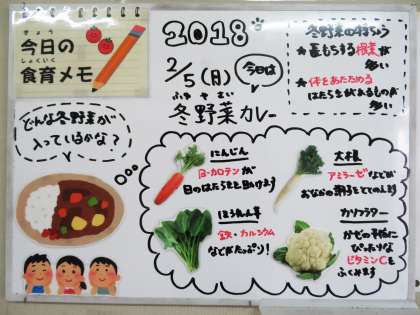 きょう
今日の
しょくいく
食育メモ
2018
2/5(月)
今日は
ふゆ やさい
冬野菜カレー
冬野菜の特ちょう
★長もちする根菜が
多い
★体をあたためる
はたらきがあるものが
多い
どんな冬野菜が
入っているかな?
にんじん
β-カロテンが
目のはたらきを助けます
大根
アミラーゼなどが
おなかの調子をととのえます
ほうれん草
鉄・カルシウム
などがたっぷり!
カリフラワー
かぜの予防に
ぴったりな
ビタミンCも
ふくみます